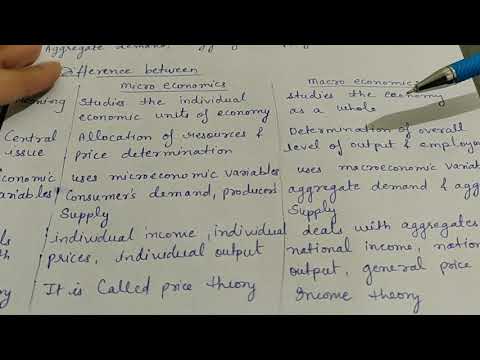 Aggregate demand,
Difference between
Micro economics Macro economics
Meaning Studies the individual studies the economy
economic units of economy as a whole
Central Allocation of resources & Determination of overall
issue price determination level of output &
uses microeconomic variables uses macroeconomic
Consumer's demand, producer's aggregate demand &
Supply Supply
individual income, individual deals with aggregates
prices, individual output national income,
output, general price
It is Called price theory Income theory